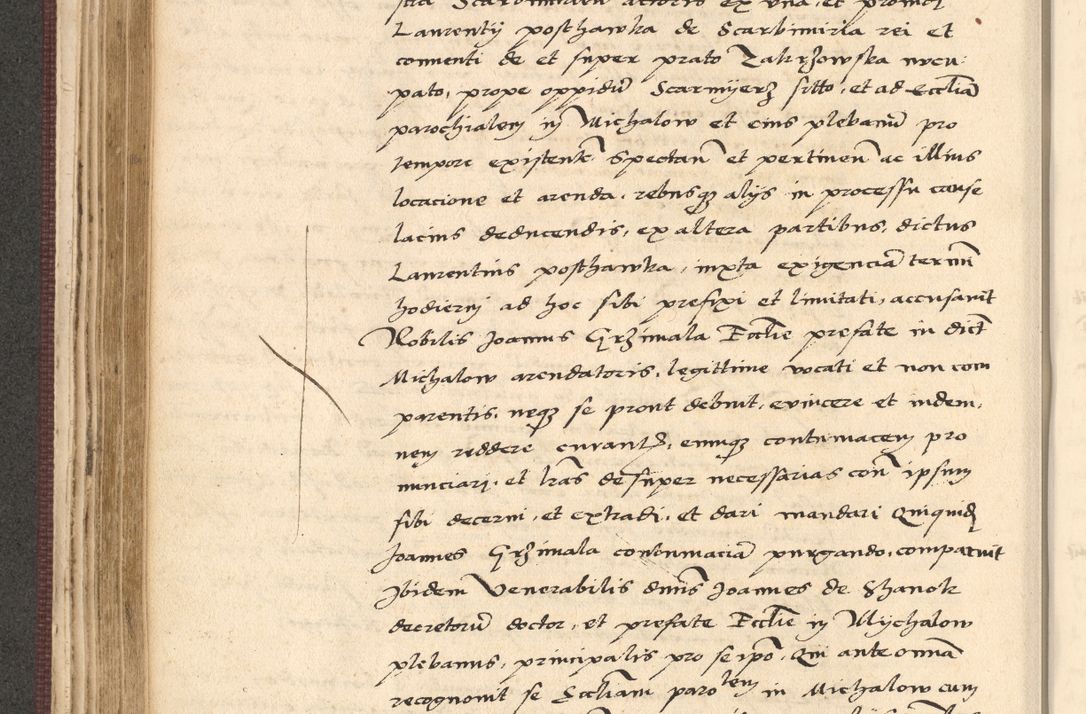 stra Scarbimirien actoris ex una, et provid
Laurentij posthawka de Scarbimiria rei et
conventi de et super prato Zakrzowska nncu
pato, prope oppidū Scarmyerz sitto, et ad Eccliā
parochialem in Michalow et eius plebanū pro
tempore existentē spectan et pertinen ac illius
locacione et arenda, rebusqz alijs in processu cause
lacius deducendis, ex altera partibus, dictus
Laurentius posthawka, iuxta exigenciā termini
hodierni ad hoc sibi prefixi et limitati, accusavit
Nobilis Joannis Grzimala Ecclie prefate in dict
Michalow arendatoris, legittime vocati et non com
parentis, neqz se prout debuit, evincere et indem,
nem reddere curantis, eumqz contumacem pro
nunciari, et lras desuper necessarias con ipsum
sibi decerni, et extradi, et dari mandari Quiquidē
Joannes Grzimala contumaciā purgando, comparuit
Ibidem Venerabilis dnus Joannes de Shanok
decretorū doctor, et prefate Ecclie in Mychalow
plebanus, principalis pro se ipo, Qui ante omnia
recognovit se Eccliam parolem in Michalow cum